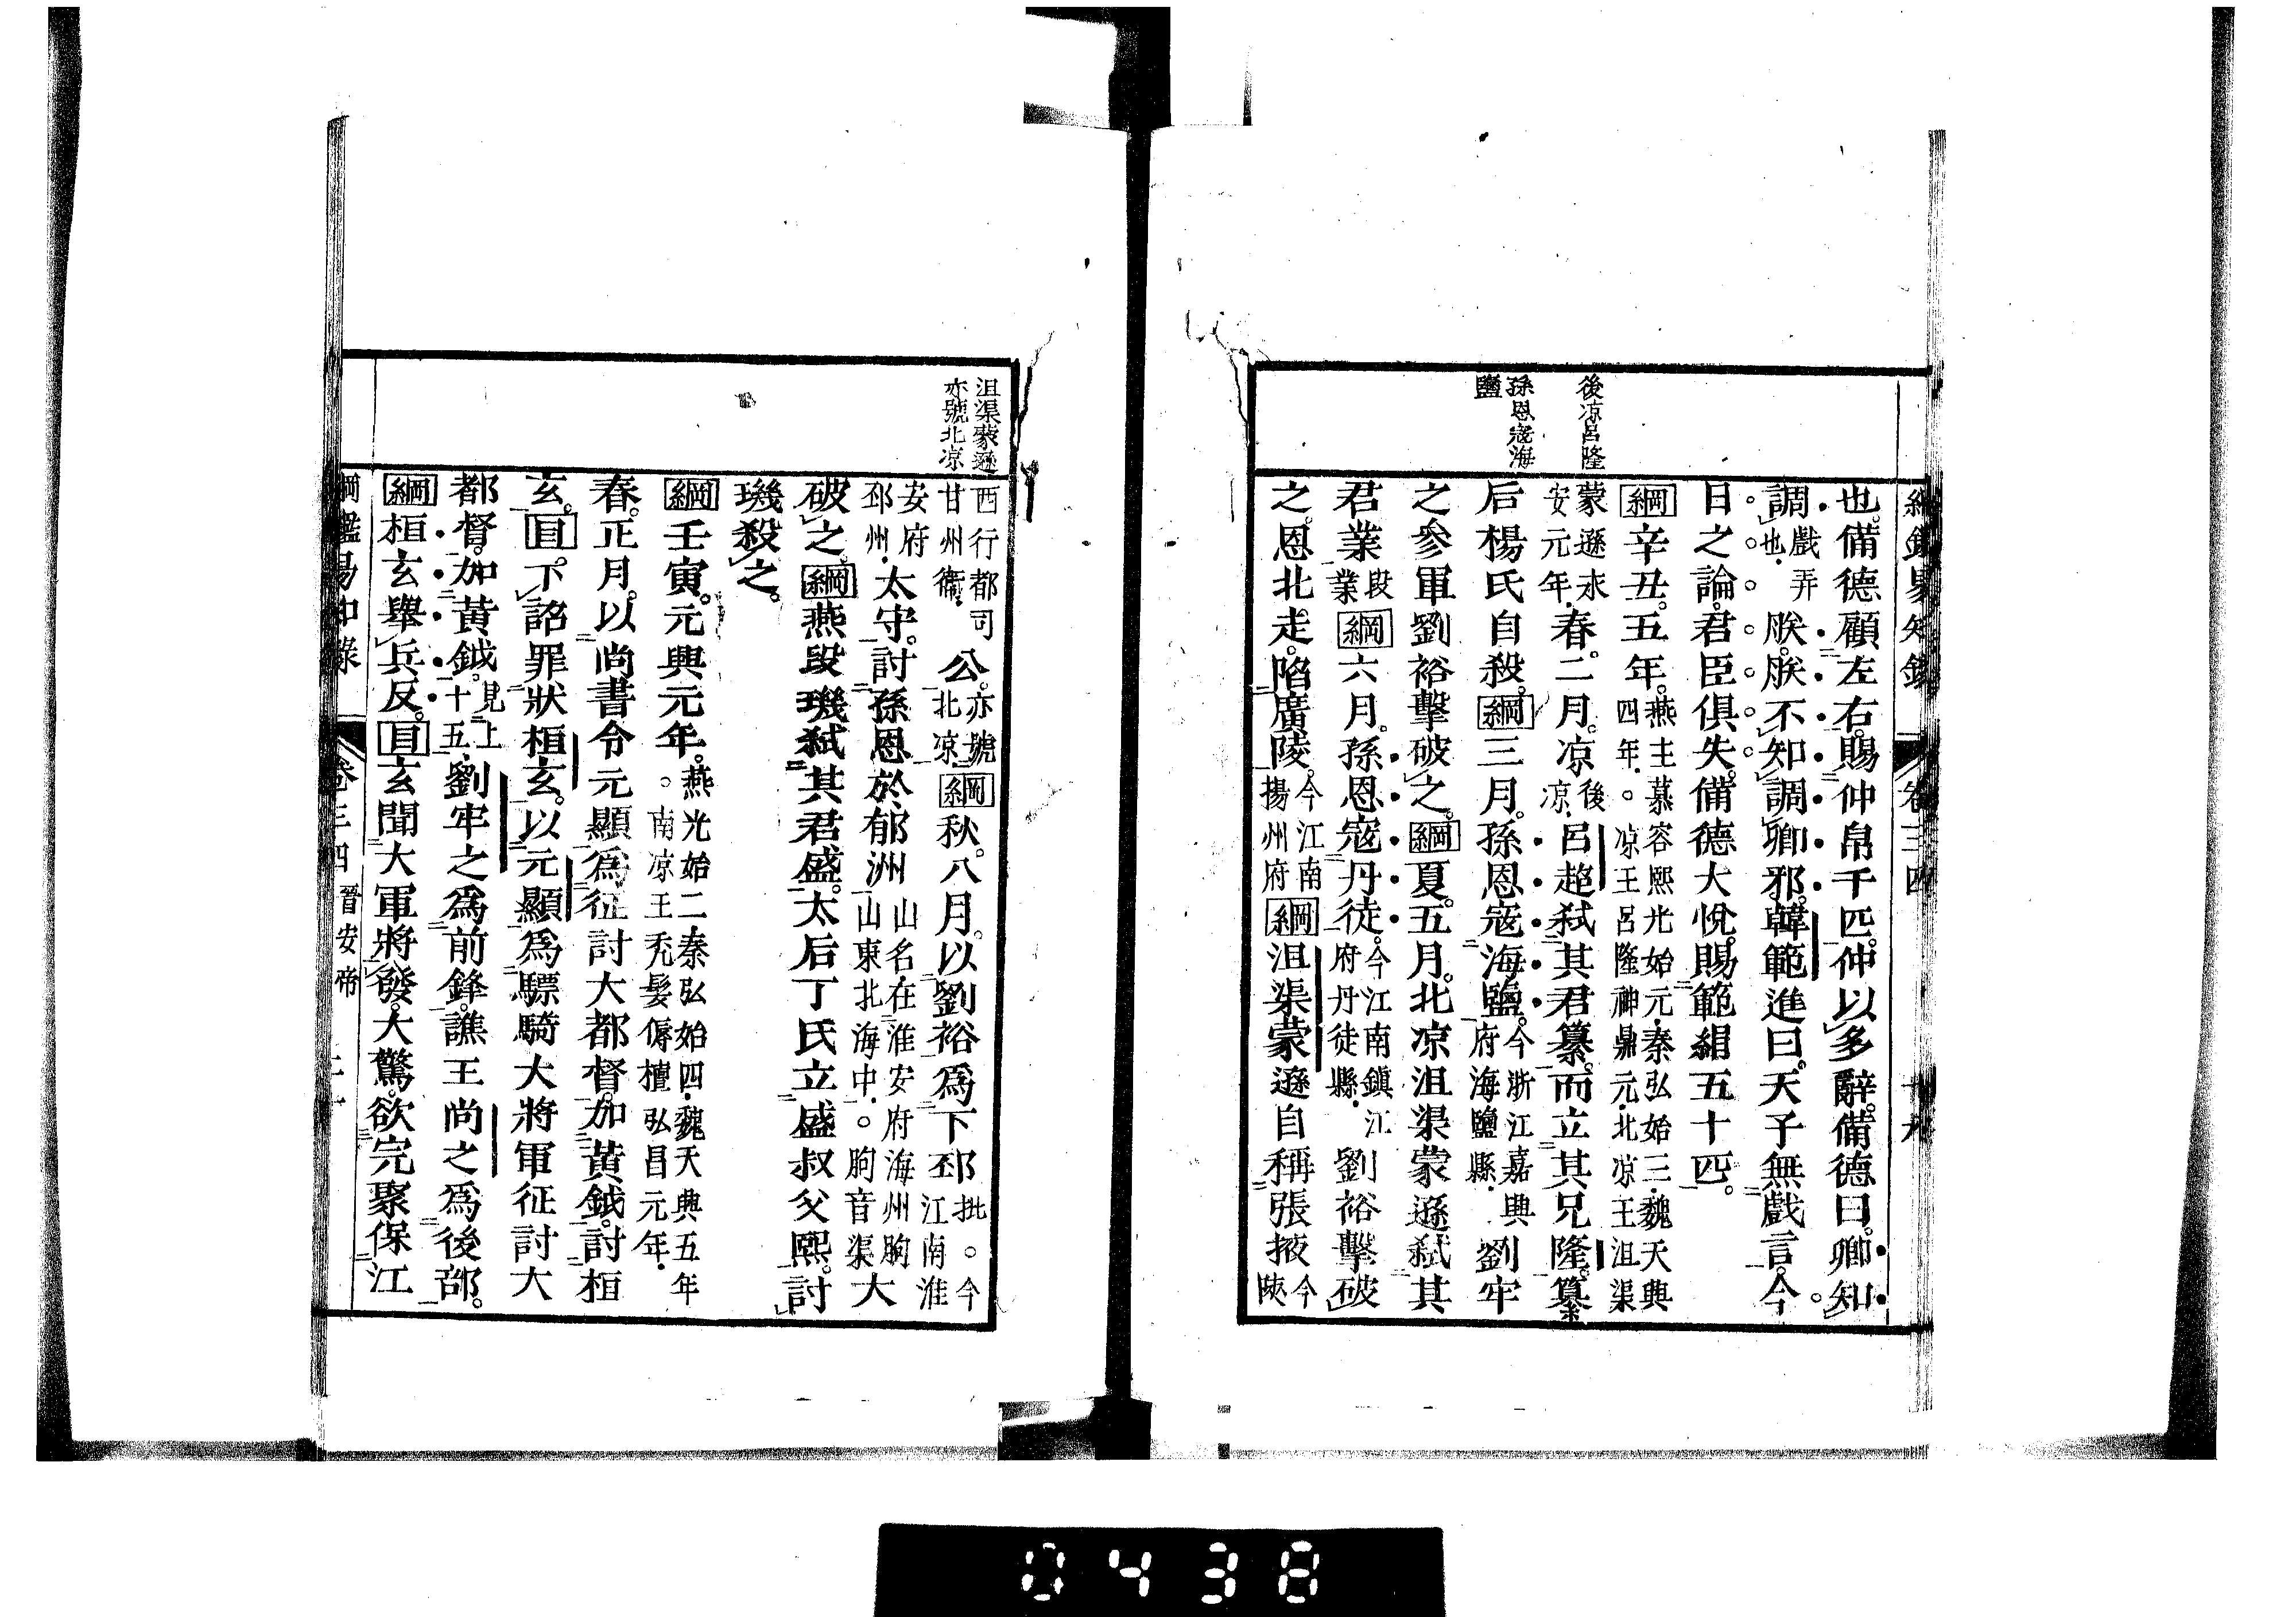 綱鑑易知錄 卷三四 十九
後凉呂隆
孫恩寇海
鹽
也。備德顧左右。賜仲帛千匹。仲以多辭。備德曰。卿知
調戲弄也。朕。朕不知調卿邪。韓範進曰。天子無戲言。今
日之論。君臣俱失。備德大悅。賜範絹五十匹。
綱辛丑。五年。燕主慕容熙光始元。秦弘始三。魏天興四年。○凉王呂隆神鼎元。北凉王沮渠
蒙遜永安元年。春。二月。凉後凉。呂超弒其君纂。而立其兄隆。纂
后楊氏自殺。綱三月。孫恩寇海鹽。今浙江嘉興府海鹽縣。劉牢
之參軍劉裕擊破之。綱夏。五月。北凉沮渠蒙遜弒其
君業段業綱六月。孫恩寇丹徒。今江南鎮江府丹徒縣。劉裕擊破
之。恩北走。陷廣陵。今江南揚州府綱沮渠蒙遜自稱張掖今陝
沮渠蒙遜
亦號北凉
西行都司甘州衞。公。亦號北凉。綱秋。八月。以劉裕爲下邳批。○今江南淮
安府邳州。太守。討孫恩於郁洲山名。在淮安府海州朐山東北海中。○朐音渠大
破之。綱燕段璣弒其君盛。太后丁氏立盛叔父熙。討
璣殺之。
綱壬寅。元興元年。燕光始二。秦弘始四。魏天興五年。○南凉王禿髮傉檀弘昌元年。
春。正月。以尚書令元顯爲征討大都督。加黃鉞。討桓
玄。目下詔罪狀桓玄。以元顯爲驃騎大將軍征討大
都督。加黃鉞。見上十五。劉牢之爲前鋒。譙王尚之爲後部。
綱桓玄舉兵反。目玄聞大軍將發。大驚。欲完聚保江
綱鑑易知錄 卷三四 晉安帝
0438